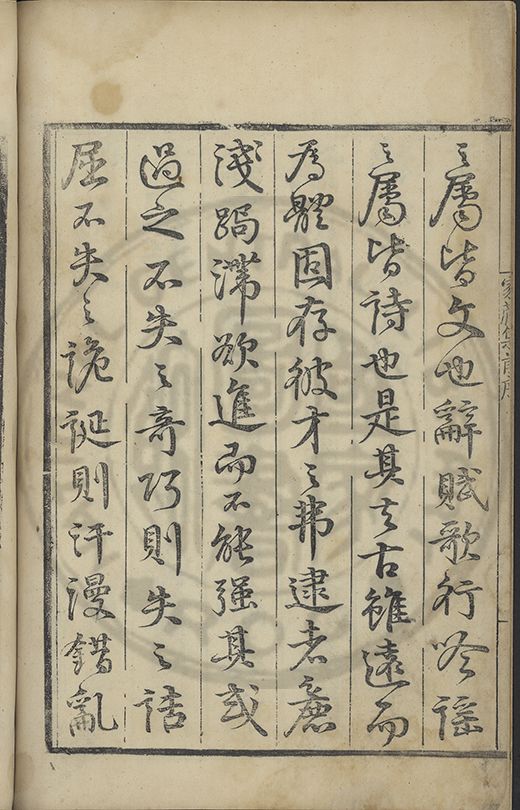 之屬皆文也辭賦歌行吟謠
之屬皆詩也是其去古雖遠而
爲體固存彼才之弗逮者麄
淺跼滯欲進而不能强其或
過之不失之奇巧則失之詰
屈不失之詭誕則汗漫錯亂